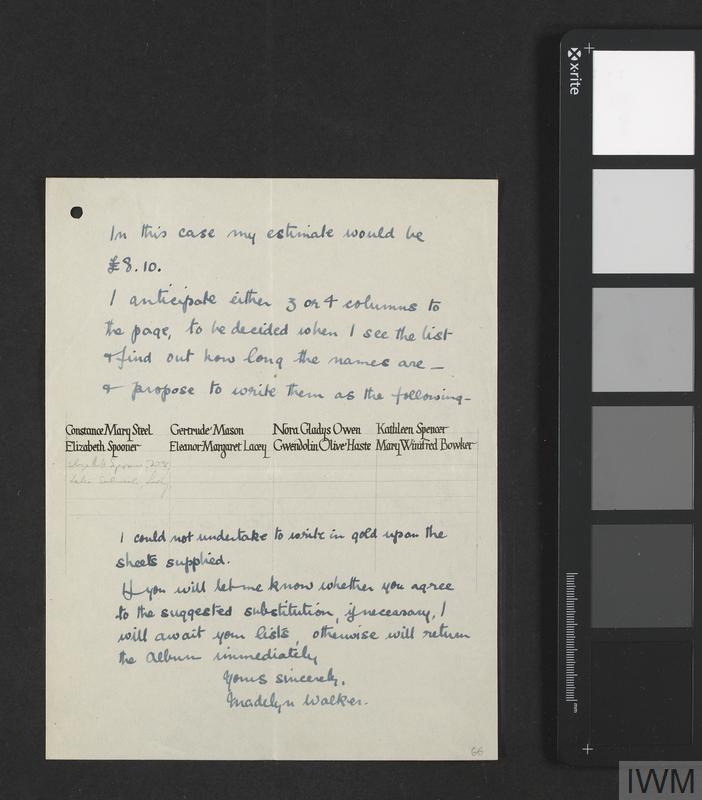 In this case my estimate would be
£8.10.
I anticipate either 3 or 4 columns to
the page, to be decided when I see the list
& find out how long the names are —
& propose to write them as the following —
Constance Mary Steel Gertrude Mason Nora Gladys Owen Kathleen Spencer
Elizabeth Spooner Eleanor Margaret Lacey Gwendolin Olive Haste Mary Winifred Bowker
I could not undertake to write in gold upon the
sheets supplied.
If you will let me know whether you agree
to the suggested substitution, if necessary, I
will await your lists, otherwise will return
the album immediately
Yours sincerely,
Madelyn Walker.
66
x-rite
mm
IWM